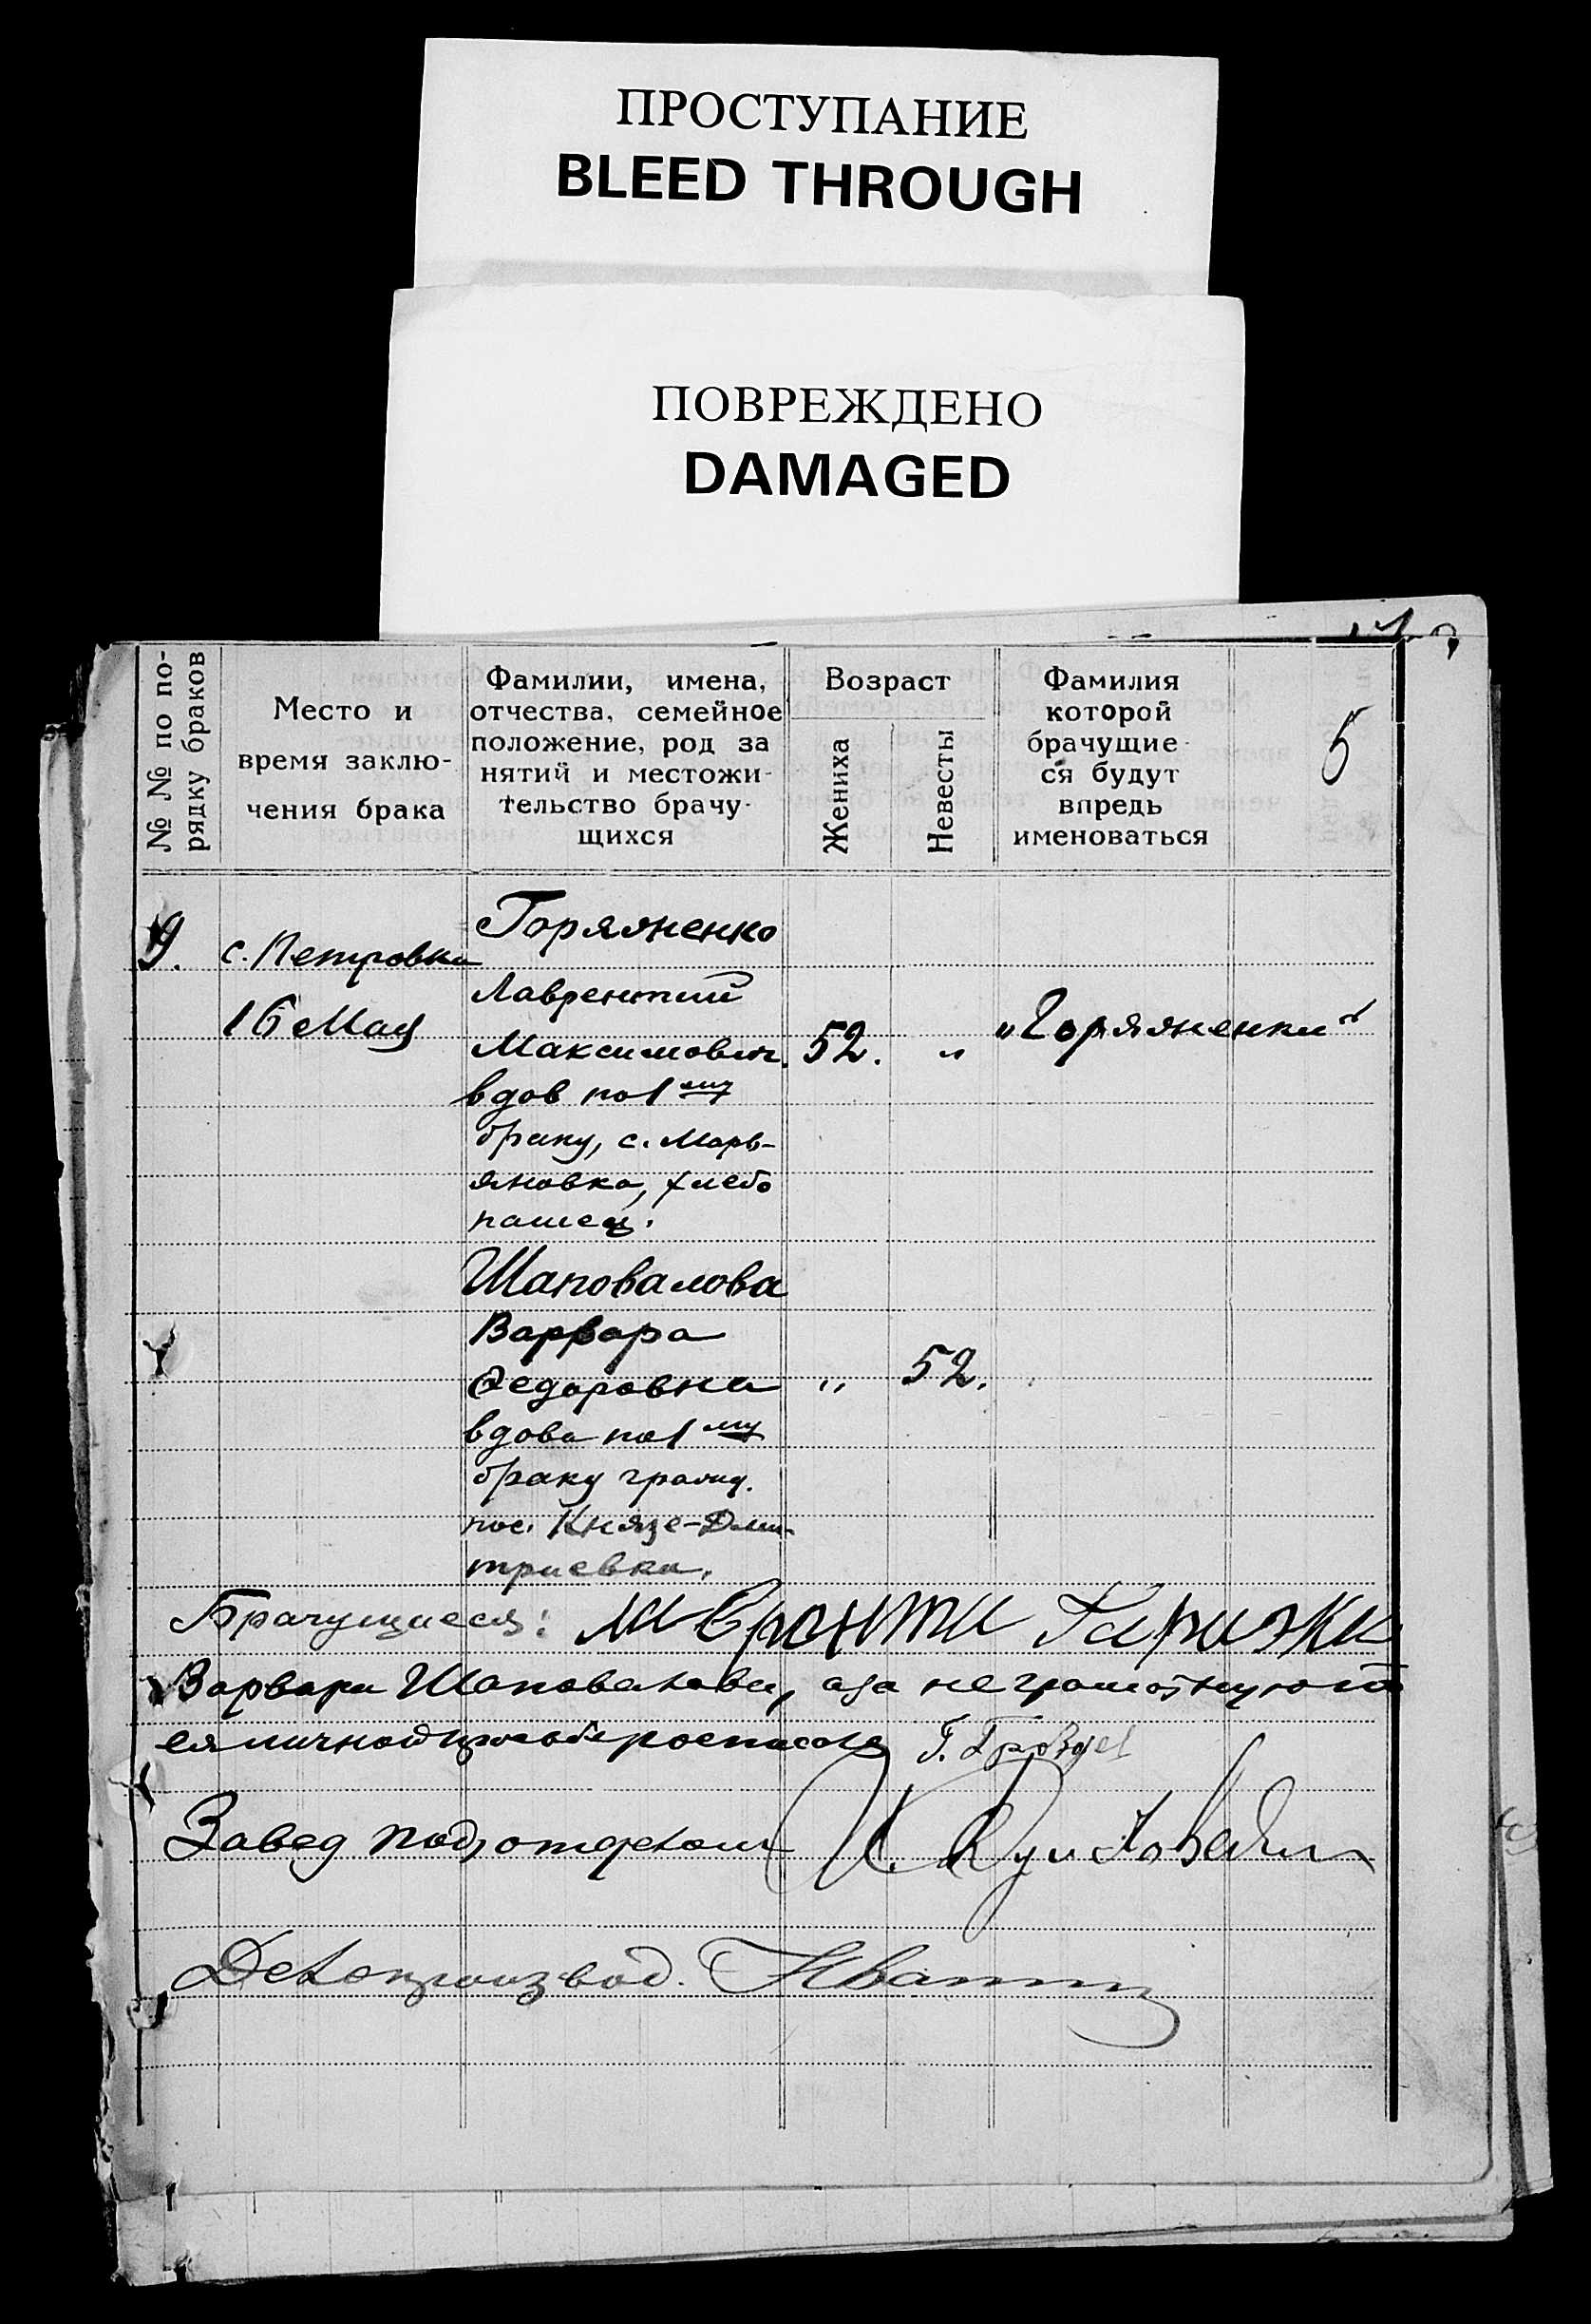 ПРОСТУПАНИЕ
BLEED THROUGH
ПОВРЕЖДЕНО
DAMAGED
№ № по по-
рядку браков
Место и
время заклю-
чения брака
Фамилии, имена,
отчества, семейное
положение, род за
нятий и местожи-
тельство брачу-
щихся
Возраст
Жениха
Невесты
Фамилия
которой
брачущие-
ся будут
впредь
именоваться
5
9.
с. Петровка
16 Мая
Горяяненко
Лаврентий
Максимович
вдов по 1му
браку, с. Марь-
яновка, хлебо
пашец.
52.
"
„Горяяненки“
Шаповалова
Варвара
Федоровна
вдова по 1му
браку
пос. Князе-Дми-
триевка.
"
52.
Брачущиеся:
Варвара Шаповалова, а за неграмотную
ея личной просьбе росписался
Завед подотделом
Делопроизвод.